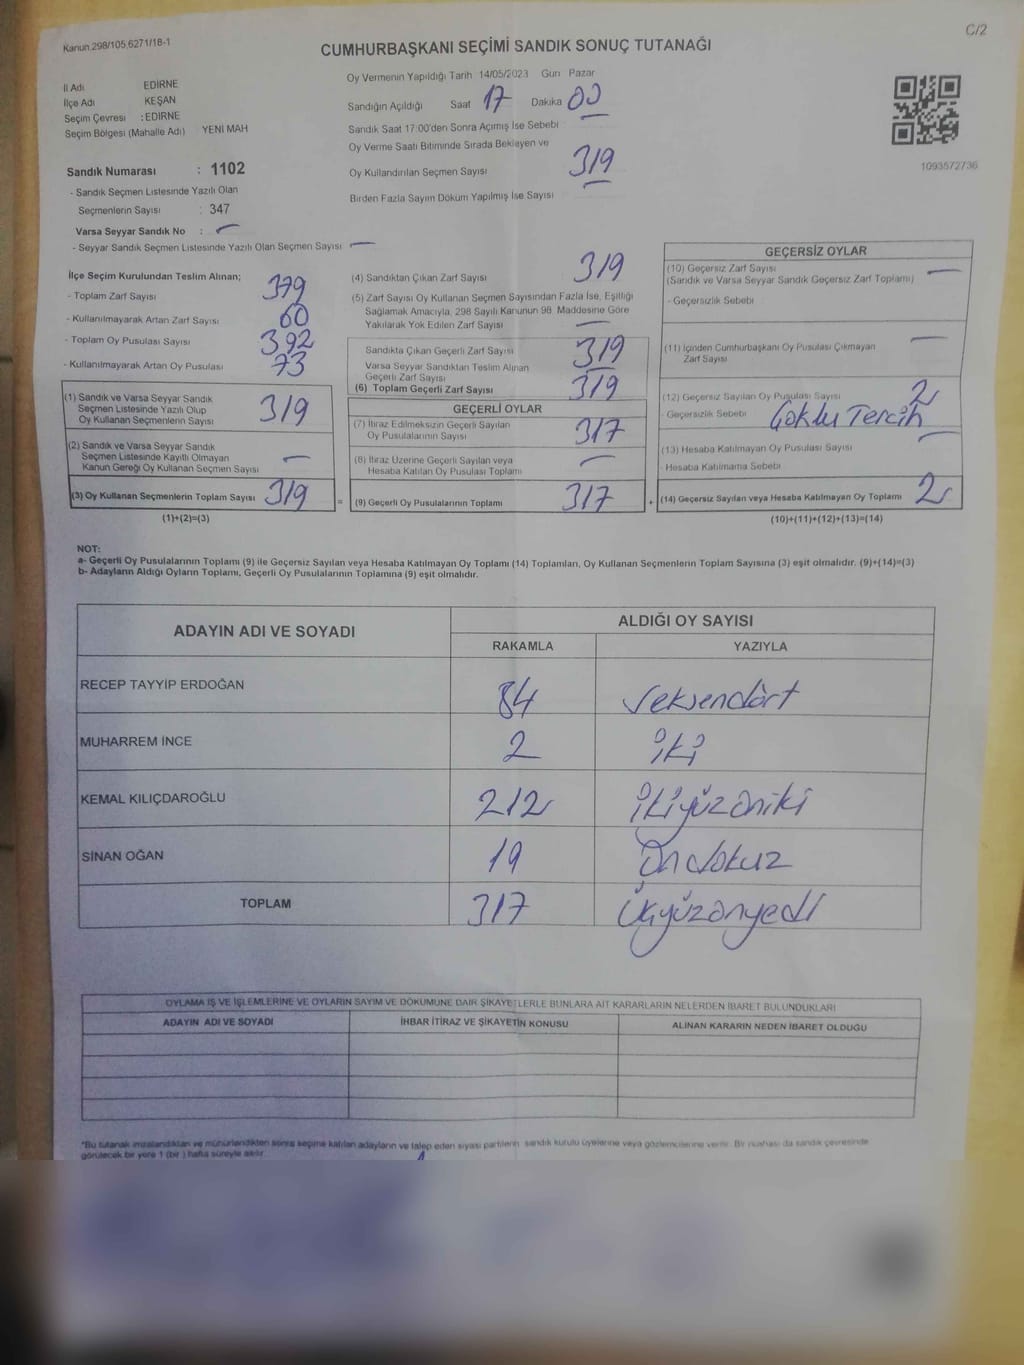 C/2
Kanun.298/105,6271/18-1
CUMHURBAŞKANI SEÇİMİ SANDIK SONUÇ TUTANAĞI
İl Adı EDİRNE
İlçe Adı KEŞAN
Seçim Çevresi : EDİRNE
Seçim Bölgesi (Mahalle Adı) YENİ MAH
Sandık Numarası : 1102
- Sandık Seçmen Listesinde Yazılı Olan
Seçmenlerin Sayısı : 347
Varsa Seyyar Sandık No : —
- Seyyar Sandık Seçmen Listesinde Yazılı Olan Seçmen Sayısı —
Oy Vermenin Yapıldığı Tarih 14/05/2023 Gün Pazar
Sandığın Açıldığı Saat 17 Dakika 00
Sandık Saat 17:00'den Sonra Açımış İse Sebebi —
Oy Verme Saati Bitiminde Sırada Bekleyen ve
Oy Kullandırılan Seçmen Sayısı 319
Birden Fazla Sayım Döküm Yapılmış İse Sayısı —
1093572736
İlçe Seçim Kurulundan Teslim Alınan;
- Toplam Zarf Sayısı 379
- Kullanılmayarak Artan Zarf Sayısı 60
- Toplam Oy Pusulası Sayısı 392
- Kullanılmayarak Artan Oy Pusulası 73
(1) Sandık ve Varsa Seyyar Sandık
Seçmen Listesinde Yazılı Olup
Oy Kullanan Seçmenlerin Sayısı 319
(2) Sandık ve Varsa Seyyar Sandık
Seçmen Listesinde Kayıtlı Olmayan
Kanun Gereği Oy Kullanan Seçmen Sayısı —
(3) Oy Kullanan Seçmenlerin Toplam Sayısı 319
(1)+(2)=(3)
(4) Sandıktan Çıkan Zarf Sayısı 319
(5) Zarf Sayısı Oy Kullanan Seçmen Sayısından Fazla İse, Eşitliği
Sağlamak Amacıyla, 298 Sayılı Kanunun 98. Maddesine Göre
Yakılarak Yok Edilen Zarf Sayısı —
Sandıkta Çıkan Geçerli Zarf Sayısı 319
Varsa Seyyar Sandıktan Teslim Alınan
Geçerli Zarf Sayısı —
(6) Toplam Geçerli Zarf Sayısı 319
GEÇERLİ OYLAR
(7) İtiraz Edilmeksizin Geçerli Sayılan
Oy Pusulalarının Sayısı 317
(8) İtiraz Üzerine Geçerli Sayılan veya
Hesaba Katılan Oy Pusulası Toplamı —
= (9) Geçerli Oy Pusulalarının Toplamı 317 +
GEÇERSİZ OYLAR
(10) Geçersiz Zarf Sayısı —
(Sandık ve Varsa Seyyar Sandık Geçersiz Zarf Toplamı)
- Geçersizlik Sebebi
(11) İçinden Cumhurbaşkanı Oy Pusulası Çıkmayan —
Zarf Sayısı
(12) Geçersiz Sayılan Oy Pusulası Sayısı 2
- Geçersizlik Sebebi Çoklu Tercih
(13) Hesaba Katılmayan Oy Pusulası Sayısı —
- Hesaba Katılmama Sebebi
(14) Geçersiz Sayılan veya Hesaba Katılmayan Oy Toplamı 2
(10)+(11)+(12)+(13)=(14)
NOT:
a- Geçerli Oy Pusulalarının Toplamı (9) ile Geçersiz Sayılan veya Hesaba Katılmayan Oy Toplamı (14) Toplamları, Oy Kullanan Seçmenlerin Toplam Sayısına (3) eşit olmalıdır. (9)+(14)=(3)
b- Adayların Aldığı Oyların Toplamı, Geçerli Oy Pusulalarının Toplamına (9) eşit olmalıdır.
ADAYIN ADI VE SOYADI ALDIĞI OY SAYISI
RAKAMLA YAZIYLA
RECEP TAYYİP ERDOĞAN 84 Seksendört
MUHARREM İNCE 2 iki
KEMAL KILIÇDAROĞLU 212 ikiyüzoniki
SİNAN OĞAN 19 Ondokuz
TOPLAM 317 Üçyüzonyedi
OYLAMA İŞ VE İŞLEMLERİNE VE OYLARIN SAYIM VE DÖKÜMÜNE DAİR ŞİKAYETLERLE BUNLARA AİT KARARLARIN NELERDEN İBARET BULUNDUKLARI
ADAYIN ADI VE SOYADI İHBAR İTİRAZ VE ŞİKAYETİN KONUSU ALINAN KARARIN NEDEN İBARET OLDUĞU
*Bu tutanak imzalandıktan ve mühürlendikten sonra seçime katılan adayların ve talep eden siyasi partilerin sandık kurulu üyelerine veya gözlemcilerine verilir. Bir nüshası da sandık çevresinde
görülecek bir yere 1 (bir) hafta süreyle asılır.